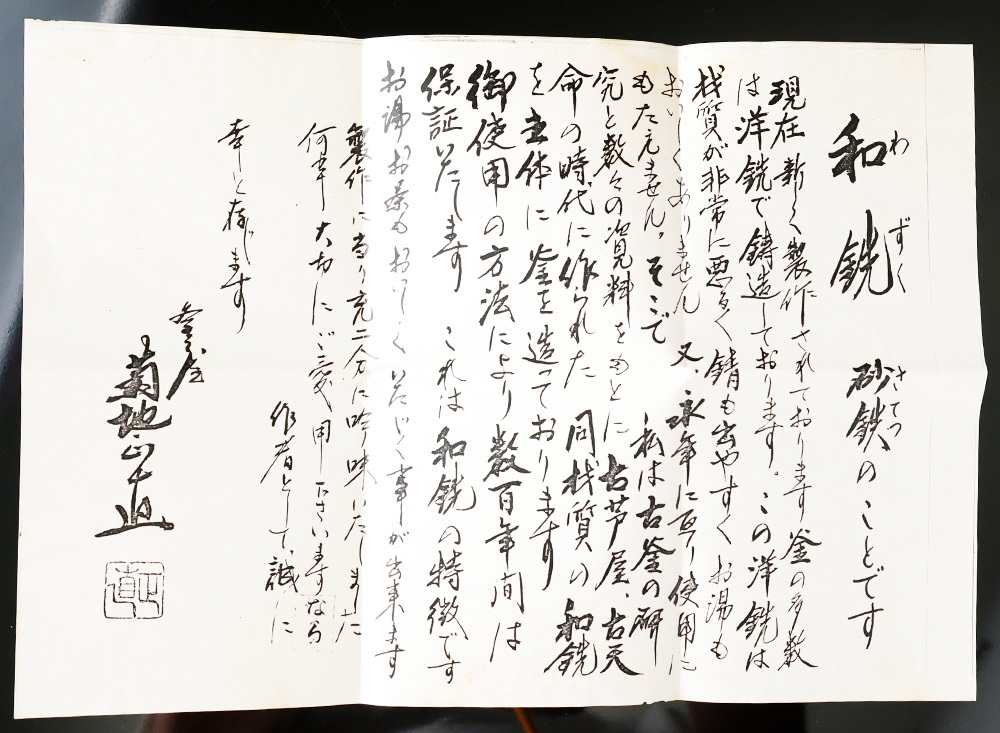 和銑 砂鉄のことです
わ ずく さてつ
現在 新しく製作されております 釜の多数
は洋銑で鋳造しております。この洋銑は
材質が非常に悪るく 錆も出やすく お湯も
おいしくありません 又、永年に亘り使用に
もたえません。そこで 私は古釜の研
究と数々の資料をもとに 古芦屋、古天
命の時代に作られた 同材質の和銑
を主体に 釜を造っております
御使用の方法により 数百年間は
保証いたします これは 和銑の特徴です
お湯お茶もおいしくいたゞく事が出来ます
製作に当り充二分に吟味いたしました
何卒 大切に ご愛用下さいますなら
作者として、誠に
幸と存じます
釜屋
菊地正直
正直